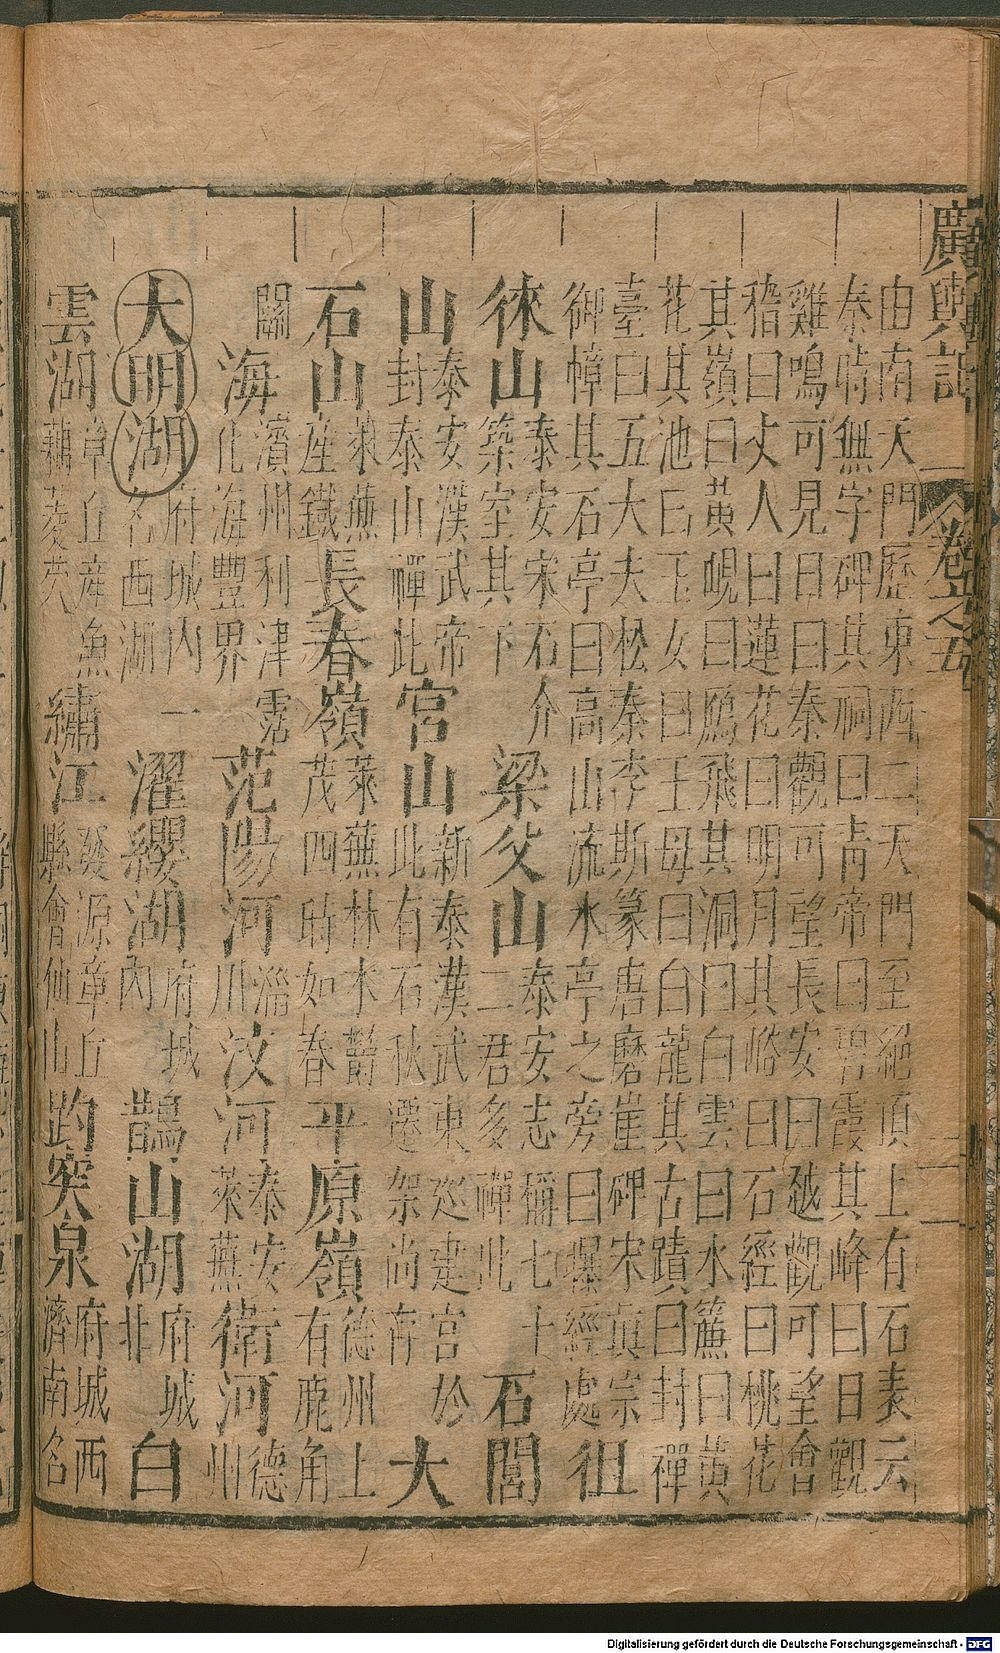 廣輿記 卷之五
由南天門歷東西二天門至絕頂上有石表云
秦時無字碑其祠曰青帝曰碧霞其峰曰日觀
雞鳴可見日曰秦觀可望長安曰越觀可望會
稽曰丈人曰蓮花曰明月其峪曰石經曰桃花
其嶺曰黃峴曰鴈飛其洞曰白雲曰水簾曰黃
花其池曰玉女曰王母曰白龍其古蹟曰封禪
臺曰五大夫松秦李斯篆唐磨崖碑宋真宗
御幛其石亭曰高山流水亭之旁曰曝經處徂
徠山泰安宋石介築室其下梁父山泰安志稱七十二君多禪此石閭
山泰安漢武帝封泰山禪此宮山新泰漢武東巡建宮於此有石秋遷架尚存大
石山萊蕪產鐵長春嶺萊蕪林木鬱茂四時如春平原嶺德州上有鹿角
關海濱州利津霑化海豐界范陽河淄川汶河泰安萊蕪衛河德州
大明湖府城內一名西湖濯纓湖府城內鵲山湖府城北白
雲湖章丘產魚藕菱芡繡江發源章丘縣會仙山趵突泉府城西濟南名
Digitalisierung gefördert durch die Deutsche Forschungsgemeinschaft - DFG